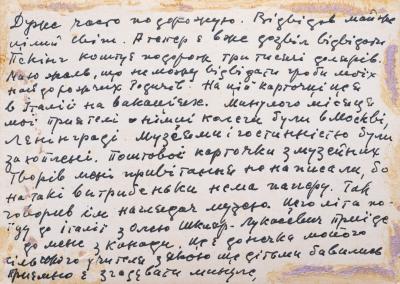 Дуже часто подорожую. Відвідав майже
цілий світ. А тепер є вже дозвіл відвідати
Пекінг коштує подорож три тисячі долярів.
На жаль, що не можу відвідати гроби моїх
найдорожчих Родичів. На цій карточці ще я
в Італії на вакаціях. Минулого місяця
мої приятелі німці колеги були в Москві,
Ленінграді. Музеями і гостинністю були
захоплені. Поштової карточки з музейних
творів мені привітання не написали, бо
на такі витребеньки нема паперу. Так
говорив їм наглядач музею. Цього літа по-
їду до Італії з Олею Шкляр-Лукасевич приїде
до мене з Канади. Це є донечка мойого
сільського учителя з якою ще дітьми бавились
Приємно є згадувати минуле,